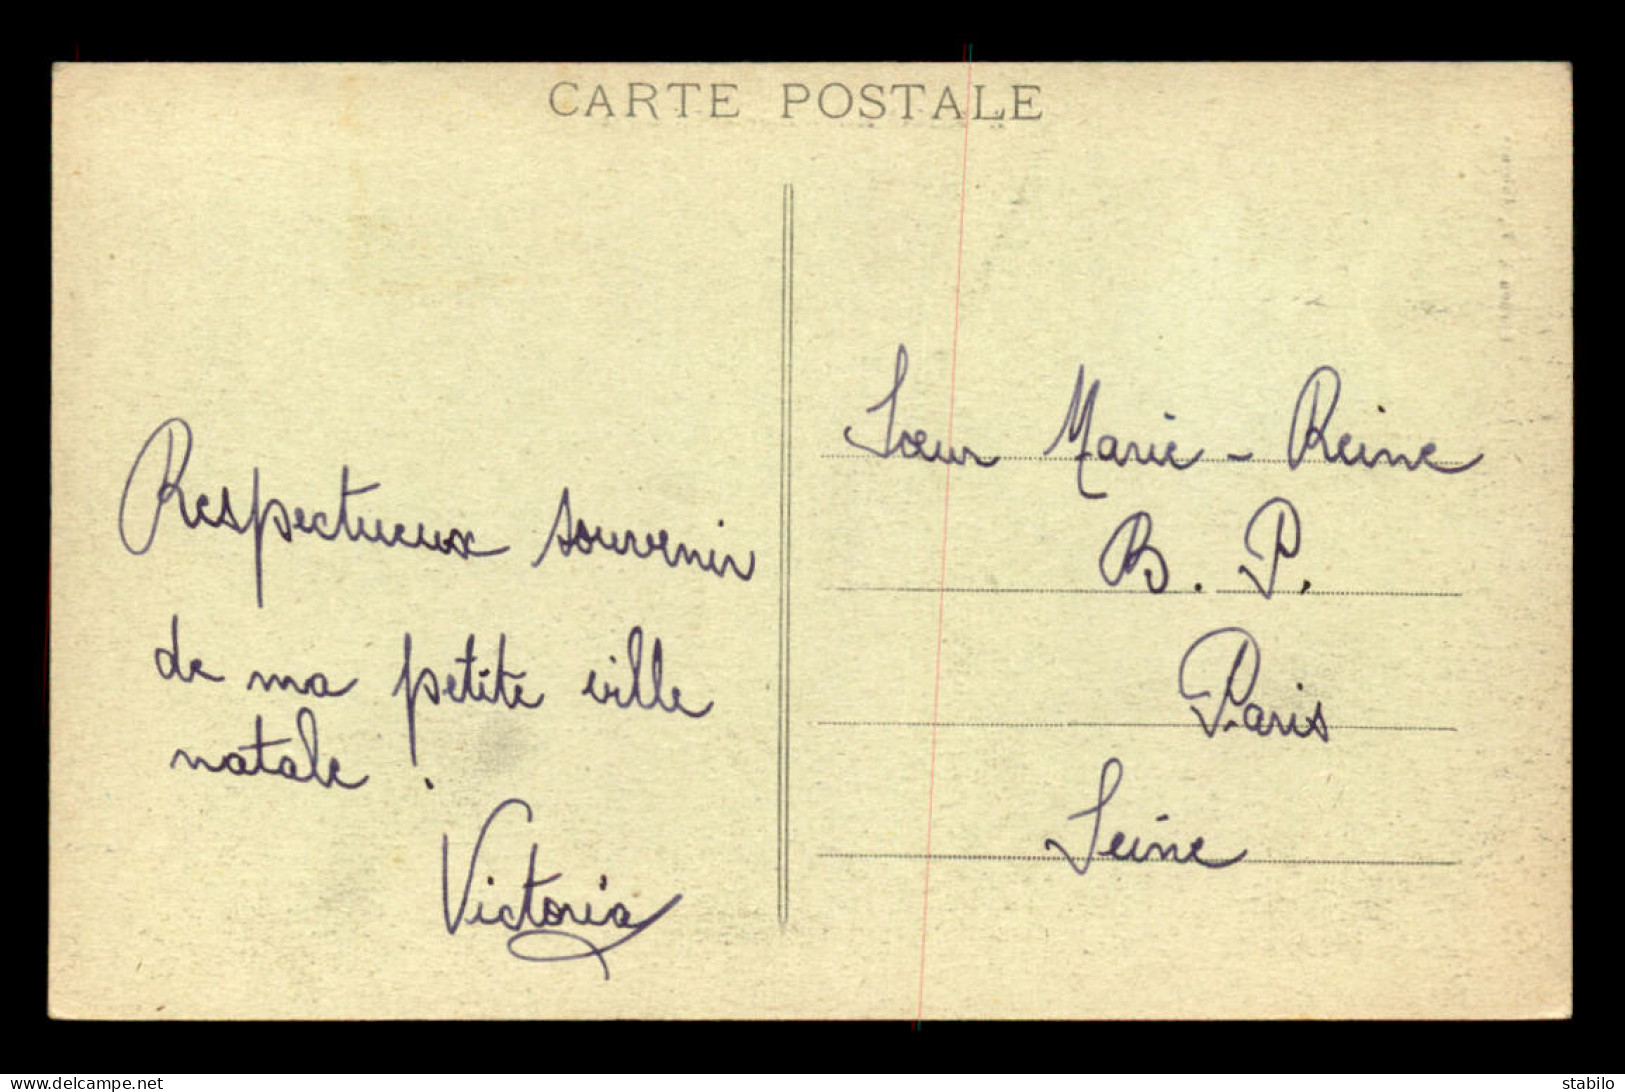 CARTE POSTALE
Respectueux souvenir
de ma petite ville
natale.
Victoria
Sœur Marie-Reine
B. P.
Paris
Seine
delcampe.net
stabilo